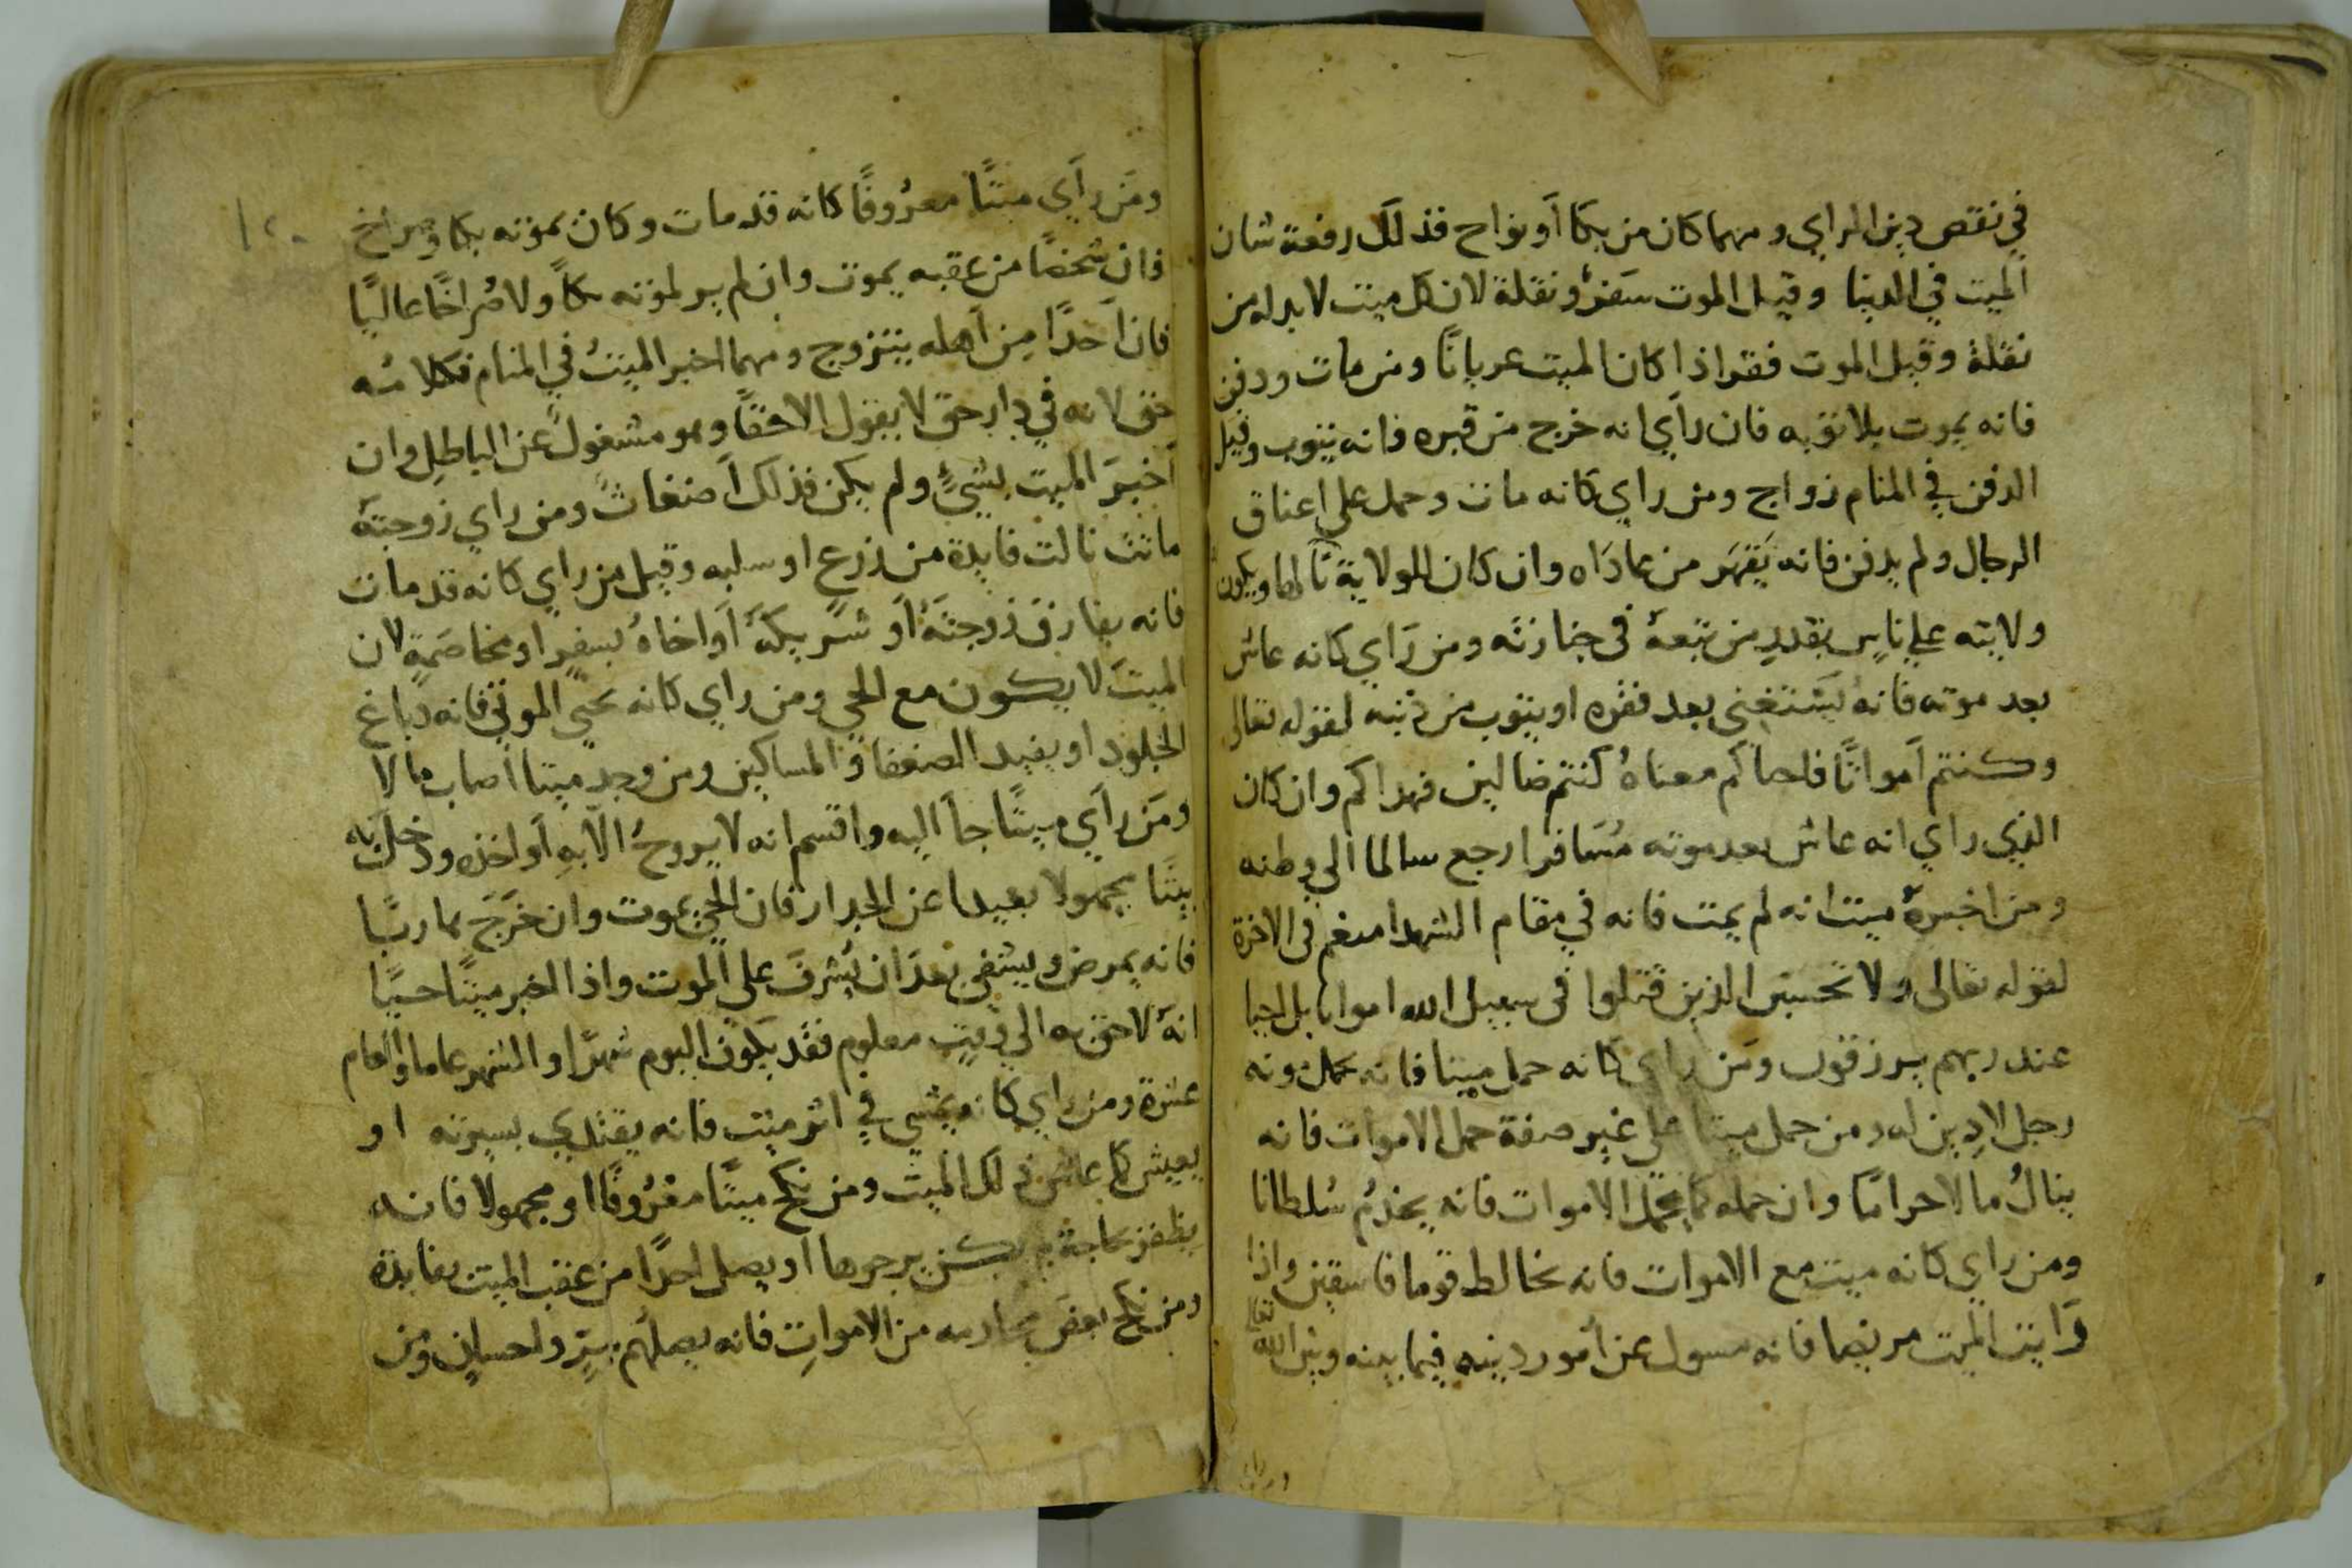 في نقص دين الراي ومهما كان من بكا أو نواح فذلك رفعة شان
الميت في الدنيا وقيل الموت سفر ونقلة لان كل ميت لا بد له من
نقلة وقيل الموت فقر اذا كان الميت عريانًا ومن مات ودفن
فانه يموت بلا توبه فان رأي انه خرج من قبره فانه يتوب وقيل
الدفن في المنام زواج ومن راي كانه مات وحمل علي اعناق
الرجال ولم يدفن فانه يقهر من عاداه وان كان للولاية نالها ويكون
ولايته علي ناس بقدر من تبعه في جنازته ومن رَاي كانه عاش
بعد موته فانه يستغني بعد فقره او يتوب من ذنبه لقوله تعالى
وكنتم أمواتًا فاحياكم معناهُ كنتم ضالين فهداكم وان كان
الذي راي انه عاش بعد موته مُسَافرا رجع سالما الي وطنه
ومن اخبره ميت انه لم يمت فانه في مقام الشهدا منعم في الاخرة
لقوله تعالى ولا تحسبن الذين قتلوا في سبيل الله امواتا بل احيا
عند ربهم يرزقون ومَن راي كانه حمل ميتا فانه يحمل مونه
رجل لا دين له ومن حمل ميتا علي غير صفة حمل الاموات فانه
ينالُ مالا حرامًا وان حمله كما يحمل الاموات فانه يخدُم سُلطانا
ومن راي كانه ميت مع الاموات فانه يخالط قوما فاسقين واذا
رَايت الميت مريضا فانه مسول عن أمور دينه فيما بينه وبين الله تعالى
ومَن رأي ميتًا معرُوفًا كانه قد مات وكان لموته بكا وصراخ
فان شخصًا من عقبه يموت وان لم ير لموته بكاً ولا صُراخًا عاليًا
فان أحدًا مِن أهله يتزوج ومهما اخبر الميتُ في المنام فكلامُه
حق لانه في دار حق لا يقول الا حقًا وهو مشغول عن الباطل وان
أخبرَ الميت بشيءٍ ولم يكن فذلك أضغاث ومن راي زوجته
ماتت نالت فايدة من زرع او سلبه وقيل من راي كانه قد مات
فانه يفارق زوجتَهُ أو شريكَهُ أو اخاهُ بسفرٍ او مخاصَمةٍ لان
الميت لا يكون مع الحي ومن راي كانه يحيي الموتي فانه دباغ
الجلود او يفيد الضعفا والمساكين ومن وجد ميتا أصاب مالا
ومَن رأي ميتًا جأ اليه واقسم انه لا يروحُ الا به أو اخذه ودخل به
بيتًا مجهولا بعيدا عن الجدار فان الحي يموت وان خَرَجَ هاربًا
فانه يمرض ويشفي بعد أن يُشرفَ علي الموت واذا اخبر ميتًا حيًا
انهُ لاحق به الي وقتٍ معلوم فقد يكون اليوم شهرًا والشهر عاما والعام
عشرة ومن راي كانه يمشي في اثر ميت فانه يقتدي بسيرته او
يعيش كما عاش ذلك الميت ومن نكح ميتًا معرُوفًا او مجهولا فانه
يظفر بحاجة لم يكن يرجوها او يصل احدًا من عقب الميت بفايدة
ومن نكح بعض محارمه من الاموات فانه يصلهم ببرٍ واحسانٍ ومن
١٢٠